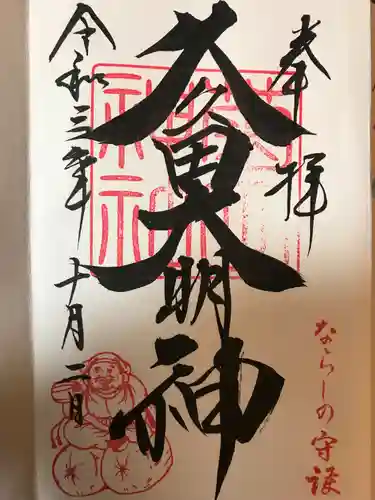 奉拝
久久田大明神
令和三年十月二日
ならしの守護